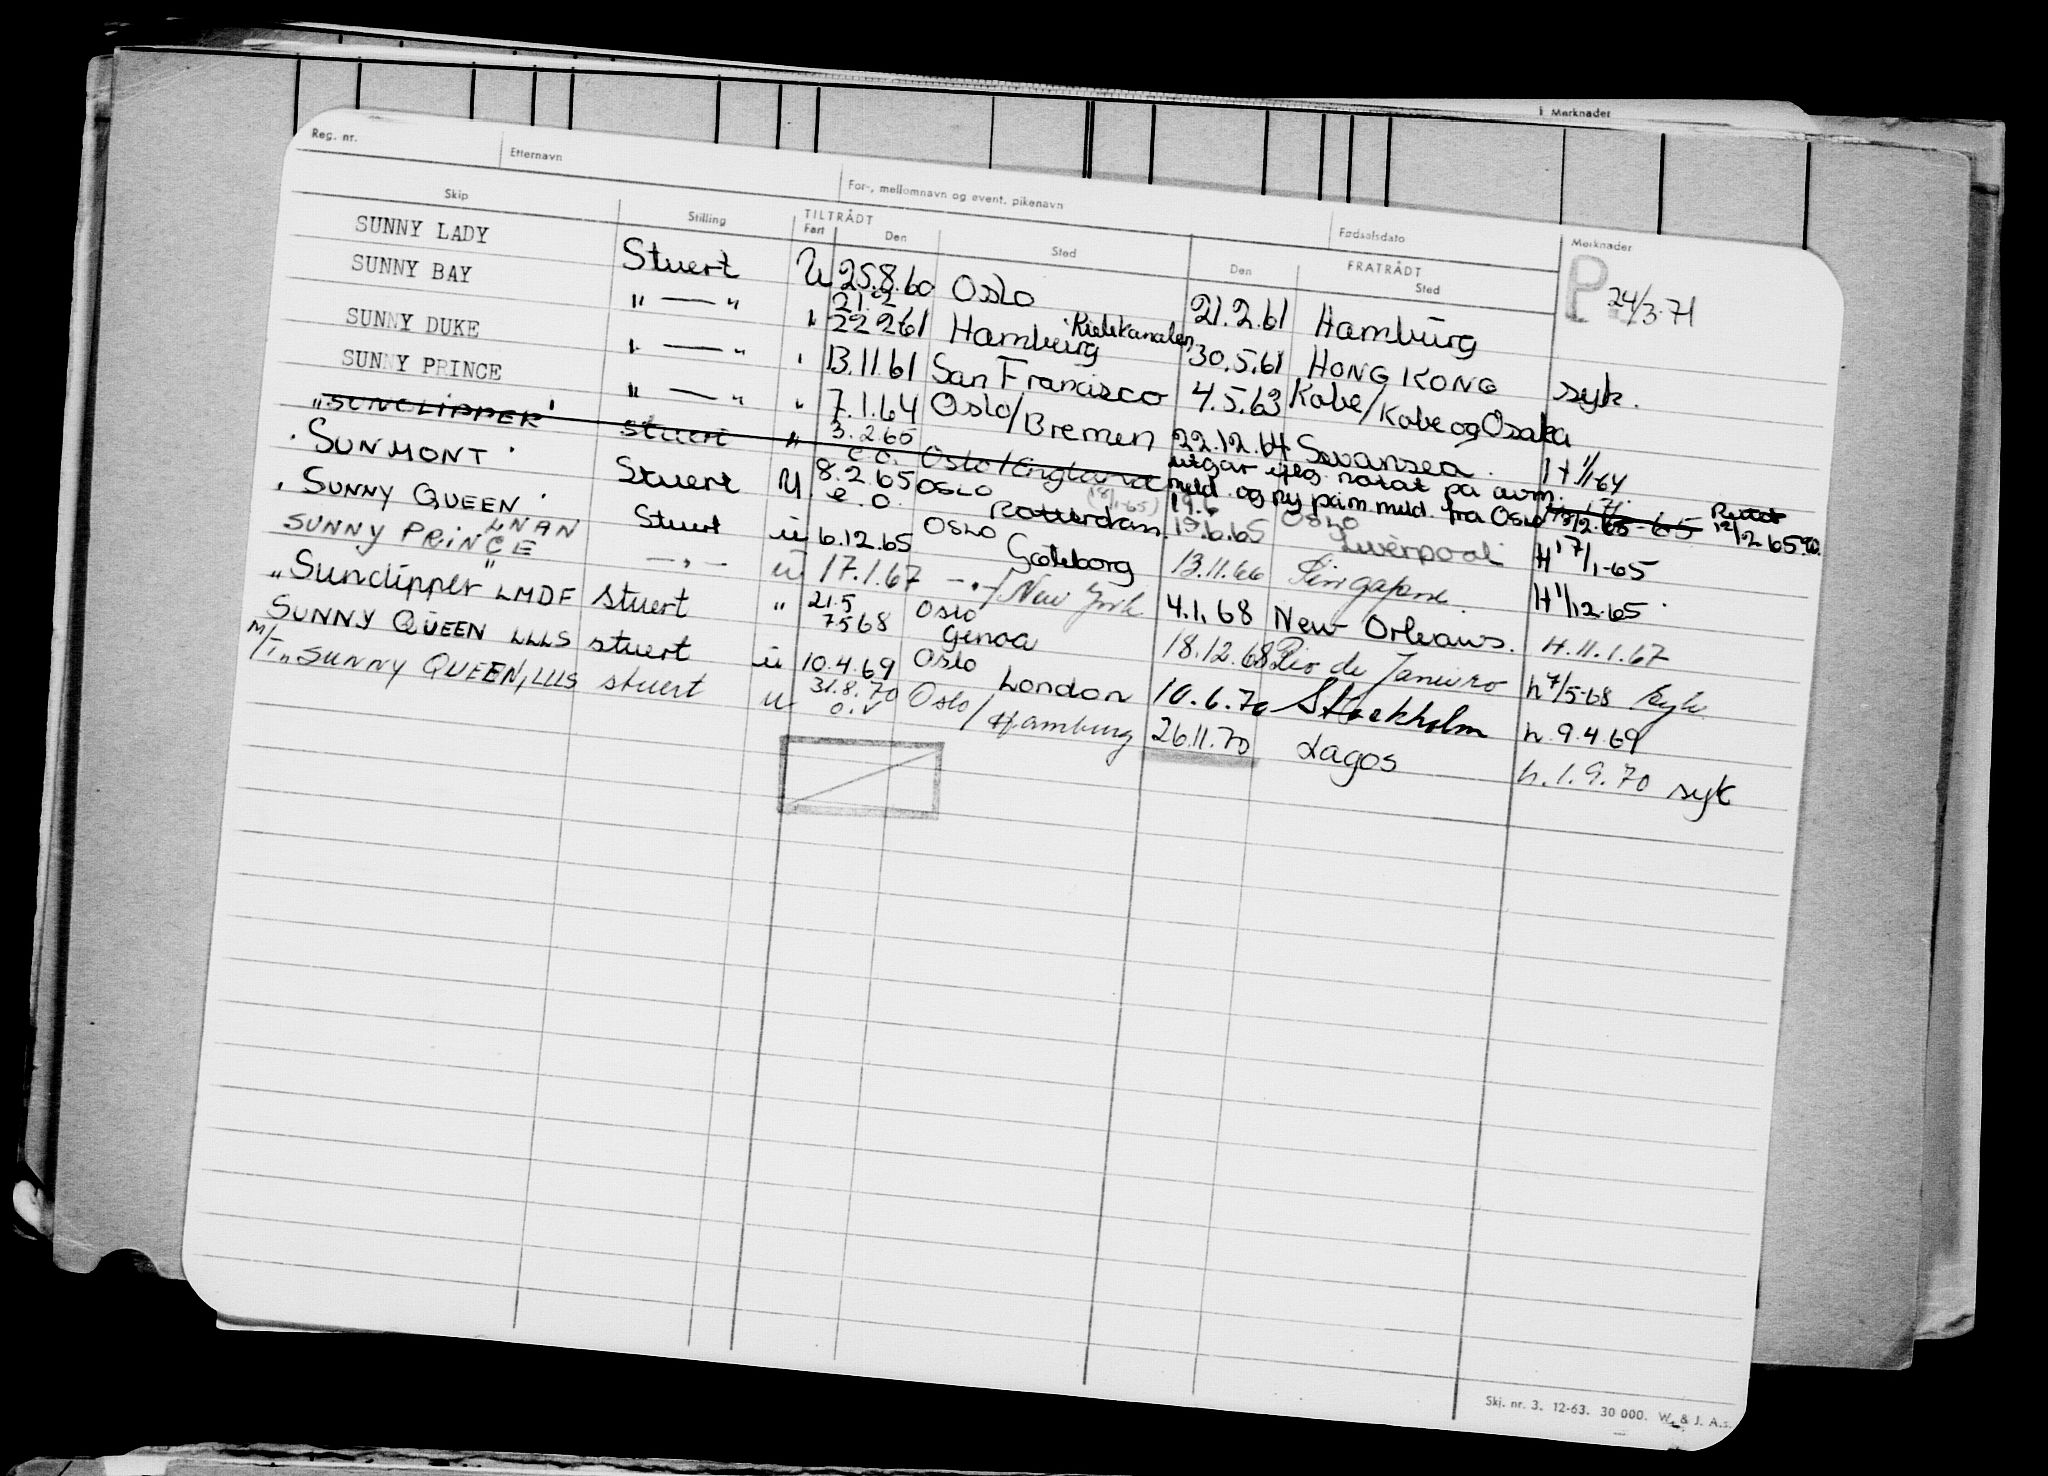 i Merknader
Reg. nr. Etternavn For-, mellomnavn og event. pikenavn Fødselsdato Merknader
Skip Stilling TILTRÅDT FRATRÅDT
Fart Den Sted Den Sted
P 24/3-71
SUNNY LADY Stuert U 25.8.60 Oslo 21.2.61 Hamburg
SUNNY BAY " — " " 21.2 22.2.61 Hamburg Kielkanalen 30.5.61 HONG KONG syk.
SUNNY DUKE " — " " 13.11.61 San Francisco 4.5.63 Kobe/Kobe og Osaka
SUNNY PRINCE " — " " 7.1.64 Oslo/Bremen 22.12.64 Swansea. H 1/1-64
"SUNCLIPPER" stuert " 3.2.65 e.o. Oslo/England utgår ifflg. notat på avm. meld. og ny påm. meld. fra Oslo 12/2.65
"SUNMONT" Stuert U 8.2.65 e.o. OSLO Rotterdam (18/1-65) 19.6 19.6.65 OSLO Liverpool H 17/1-65
"SUNNY QUEEN" Stuert ü 6.12.65 OSLO Göteborg 13.11.66 Singapore. H 1/12.65
SUNNY PRINCE LNAN — " — ü 17.1.67 — " —/New York 4.1.68 New Orleans. H.11.1.67
"Sunclipper" LMDF stuert " 21.5 7.5.68 Oslo Genoa 18.12.68 Rio de Janeiro h 7/5-68 syk
SUNNY QUEEN LLLS stuert ü 10.4.69 Oslo London 10.6.70 Stockholm h.9.4.69
M/T "SUNNY QUEEN, LLLS stuert u 31.8.70 o.v Oslo/Hamburg 26.11.70 Lagos h.1.9.70 syk
Skj. nr. 3. 12-63. 30 000. W. & J. A.s.